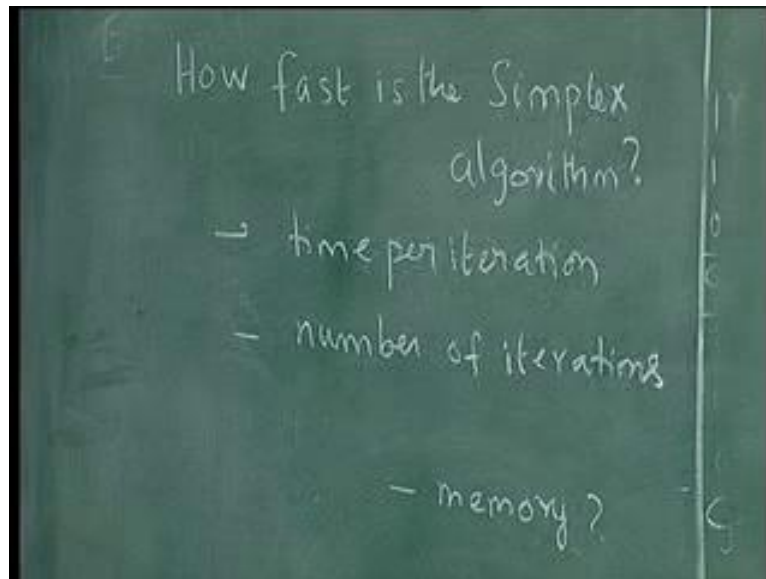 How fast is the Simplex
algorithm?
- time per iteration
- number of iterations
- memory?